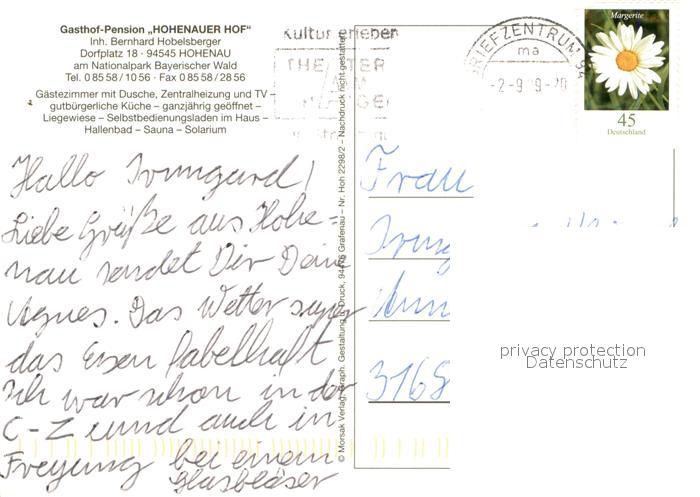 Gasthof-Pension „HOHENAUER HOF"
Inh. Bernhard Hobelsberger
Dorfplatz 18 · 94545 HOHENAU
am Nationalpark Bayerischer Wald
Tel. 0 85 58 / 10 56 · Fax 0 85 58 / 28 56
Gästezimmer mit Dusche, Zentralheizung und TV –
gutbürgerliche Küche – ganzjährig geöffnet –
Liegewiese – Selbstbedienungsladen im Haus –
Hallenbad – Sauna – Solarium
Hallo Irmgard!
Liebe Grüße aus Hohe=
nau sendet Dir Deine
Agnes. Das Wetter super
das Essen fabelhaft
Ich war schon in der
C-Z und auch in
Freyung bei einem
Glasbläser
Kultur erleben
THEATER
AM
BRIEFZENTRUM 94
ma
-2-9
Margerite
45
Deutschland
© Morsak Verlag, Graph. Gestaltung und Druck, 94476 Grafenau – Nr. Hoh 2298/2 – Nachdruck nicht gestattet
Frau
Irmg
3168
privacy protection
Datenschutz